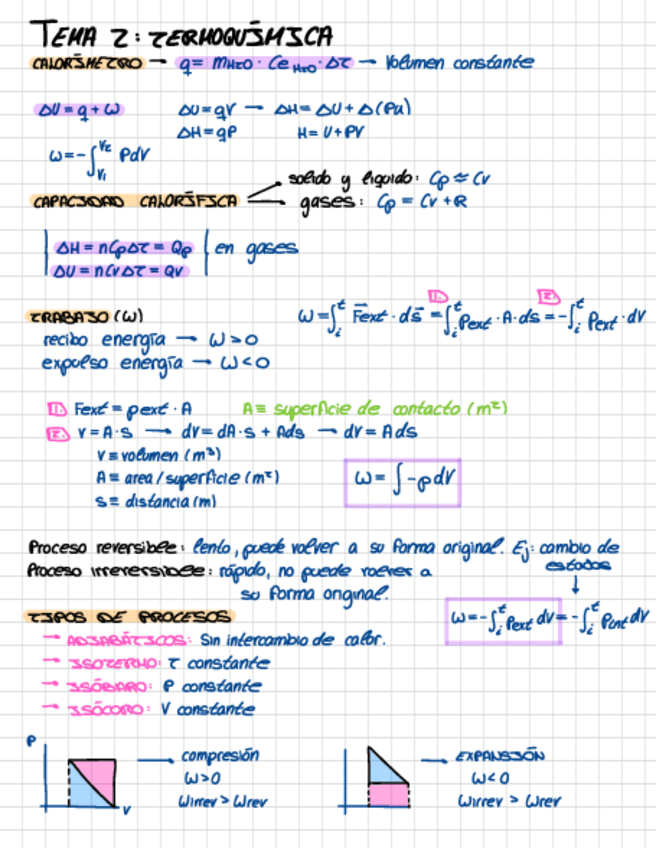 TEMA 2: TERMOQUÍMICA
CALORÍMETRO → q = mH2O · Ce H2O · ΔT → Volumen constante
ΔU = q + ω    ΔU = qV → ΔH = ΔU + Δ(PV)
ΔH = qP    H = U + PV
ω = -∫V1^V2 PdV
CAPACIDAD CALORÍFICA
solido y liquido: Cp ≈ Cv
gases: Cp = Cv + R
ΔH = nCpΔT = Qp
ΔU = nCvΔT = Qv
en gases
TRABAJO (W)    ω = ∫i^t F⃗ext · ds⃗ = ∫i^t Pext · A · ds = -∫i^t Pext · dV
1.    2.
recibo energía → ω > 0
expulso energía → ω < 0
1. Fext = pext · A    A ≡ superficie de contacto (m²)
2. V = A · s → dV = dA · s + Ads → dV = Ads
V ≡ volumen (m³)
A ≡ area / superficie (m²)    ω = ∫ -p dV
s ≡ distancia (m)
Proceso reversible: lento, puede volver a su forma original. Ej: cambio de
estados
Proceso irreversible: rápido, no puede volver a
su forma original.
TIPOS DE PROCESOS    ω = -∫i^t Pext dV = -∫i^t Pint dV
→ ADIABÁTICOS: Sin intercambio de calor.
→ ISOTERMO: T constante
→ ISÓBARO: P constante
→ ISÓCORO: V constante
P
V
→ compresión
ω > 0
ωirrev > ωrev
→ EXPANSIÓN
ω < 0
ωirrev > ωrev